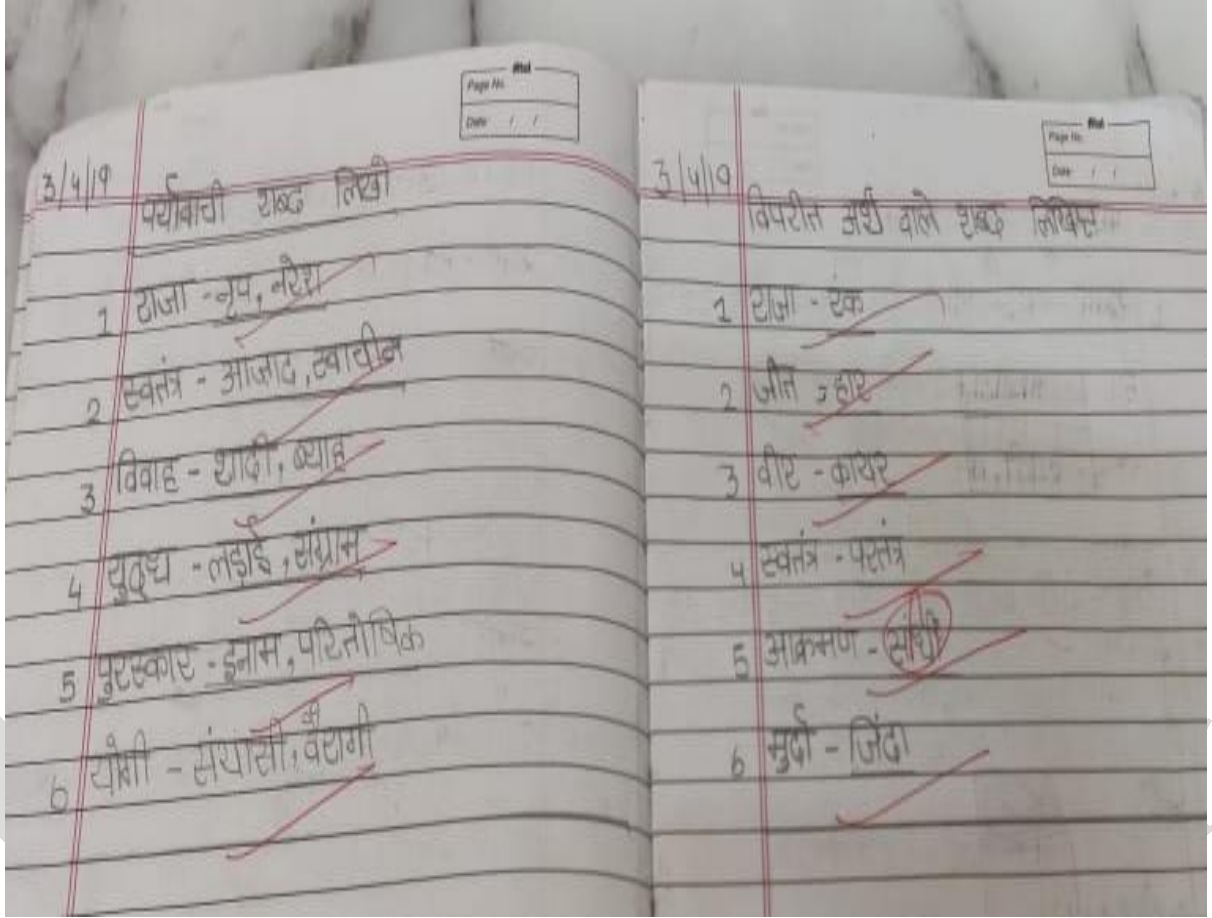 Page No.
Date / /
3/4/19
पर्यावाची शब्द लिखी
1 राजा - नृप, नरेश
2 स्वतंत्र - आजाद, स्वाधीन
3 विवाह - शादी, ब्याह
4 युद्ध - लड़ाई, संग्राम
5 पुरस्कार - इनाम, परितोषिक
6 योगी - संयासी, वैरागी
Page No.
Date / /
3/4/19
विपरीत अर्थ वाले शब्द लिखिए
1 राजा - रंक
2 जीत - हार
3 वीर - कायर
4 स्वतंत्र - परतंत्र
5 आक्रमण - सांधी
6 मुर्दा - जिंदा